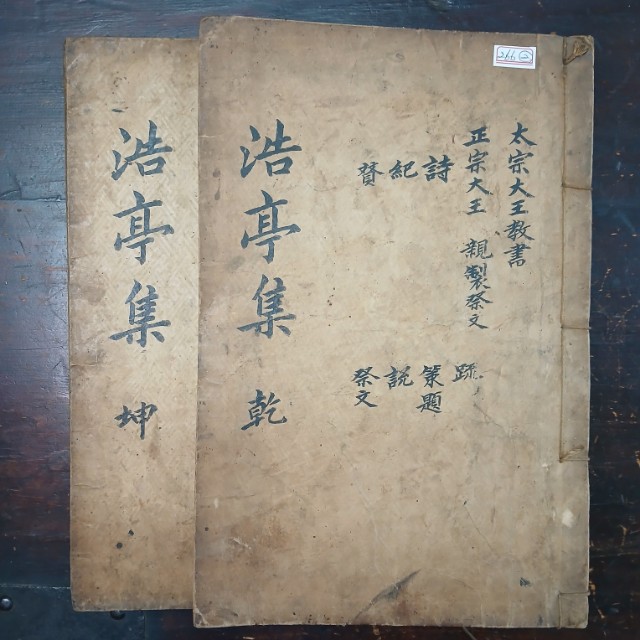 太宗大王教書
正宗大王 親製祭文
詩 䟽
紀 策題
贊 說
祭文
浩亭集 乾
浩亭集 坤